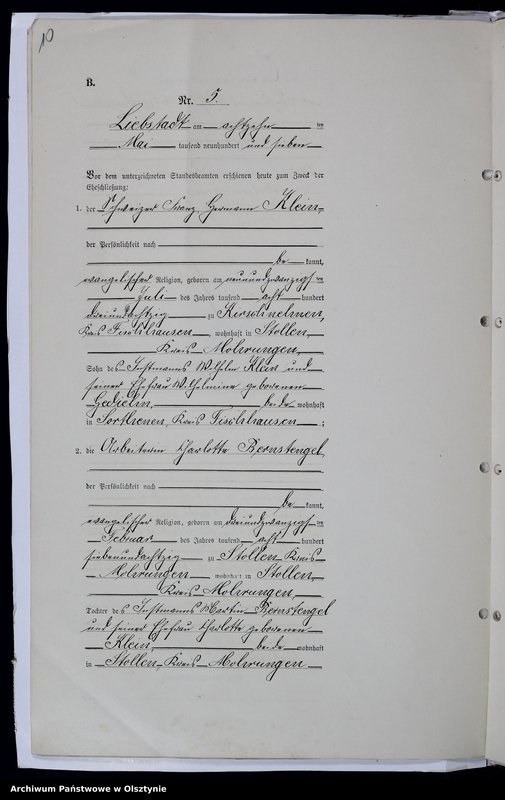 10
B.
Nr. 5.
Liebstadt am achtzehn ten
Mai tausend neunhundert und sieben
Vor dem unterzeichneten Standesbeamten erschienen heute zum Zweck der
Eheschließung:
1. der Schweizer Franz Hermann Klein
der Persönlichkeit nach
be kannt,
evangelischer Religion, geboren am neunundzwanzigs ten
Juli des Jahres tausend acht hundert
dreiundachtzig zu Kirschnehnen,
Kreis Fischhausen, wohnhaft in Stollen,
Kreis Mohrungen,
Sohn des Instmanns Wilhelm Klein und
seiner Ehefrau Wilhelmine geborenen
beide wohnhaft
in Sorthenen, Kreis Fischhausen ;
2. die Arbeiterin Charlotte Bernstengel
der Persönlichkeit nach
be kannt,
evangelischer Religion, geboren am dreiundzwanzigs ten
Februar des Jahres tausend acht hundert
siebenundachtzig zu Stollen Kreis
Mohrungen, wohnhaft in Stollen,
Kreis Mohrungen,
Tochter des Instmanns Martin Bernstengel
und seiner Ehefrau Charlotte geborenen
Klein, beide wohnhaft
in Stollen, Kreis Mohrungen
Archiwum Państwowe w Olsztynie